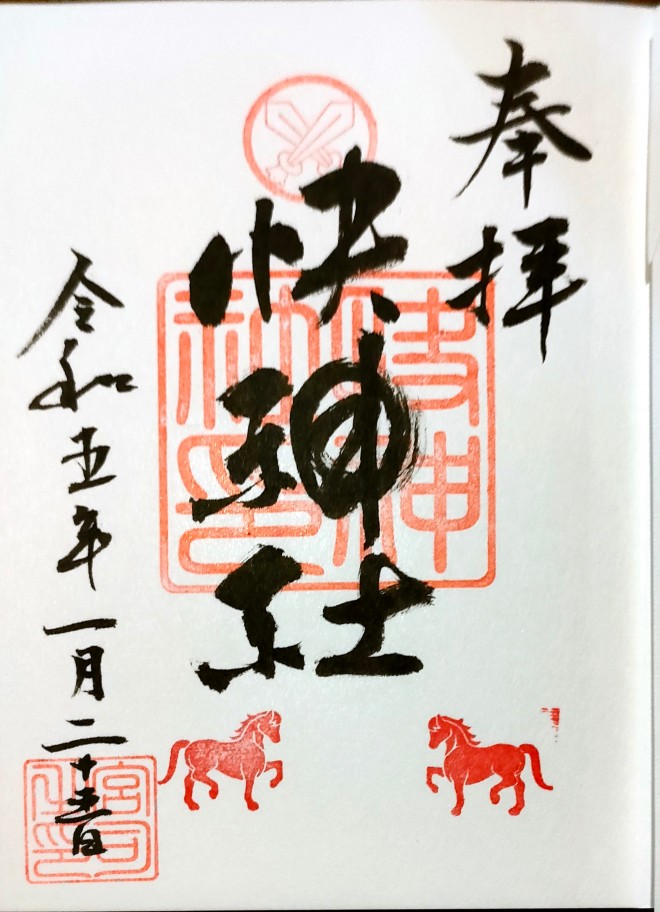 奉拝
快神社
令和五年一月二十五日
宮司之印